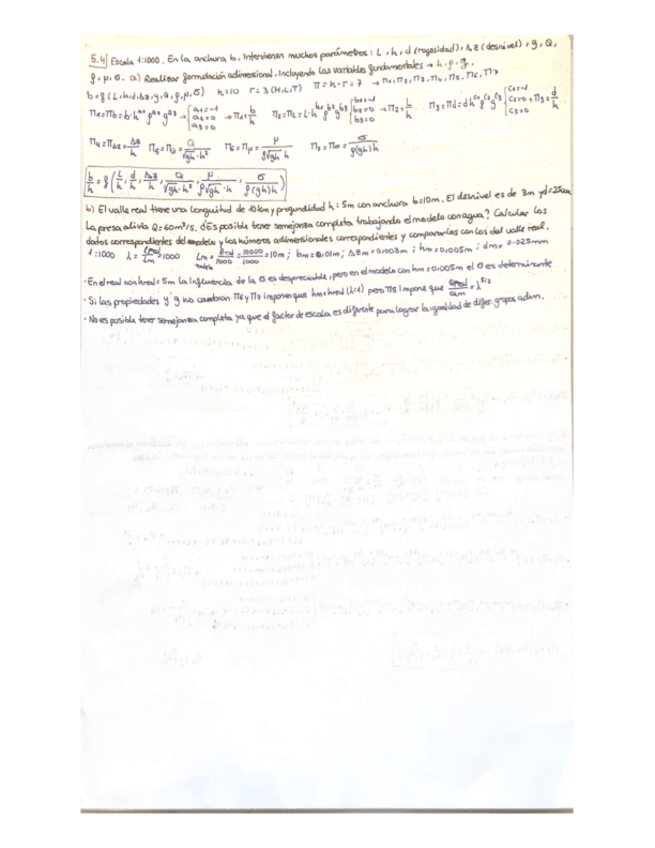 5.4 Escala 1:1000. En la anchura b, intervienen muchos parámetros: L, h, d (rugosidad), Δz (desnivel), g, Q,
ρ, μ, σ. a) Realizar formulación adimensional, incluyendo las variables fundamentales → h, ρ, g.
b = f (L, h, d, Δz, g, Q, ρ, μ, σ) n=10 r=3 (M,L,T) Π = n-r = 7 → Π1, Π2, Π3, Π4, Π5, Π6, Π7
Π1=Πb=b·h^a1 ρ^a2 g^a3 → {a1=-1 a2=0 a3=0 → Π1=b/h Π2=ΠL=L·h^b1 ρ^b2 g^b3 {b1=-1 b2=0 b3=0 → Π2=L/h Π3=Πd=d h^c1 ρ^c2 g^c3 {c1=-1 c2=0 c3=0 → Π3=d/h
Π4=ΠΔz=Δz/h Π5=ΠQ=Q/√gh·h² Π6=Πμ=μ/ρ√gh·h Π7=Πσ=σ/ρ(gh)h
b/h = f (L/h, d/h, Δz/h, Q/√gh·h², μ/ρ√gh·h, σ/ρ(gh)h)
b) El valle real tiene una longitud de 10km y profundidad h=5m con anchura b=10m. El desnivel es de 3m y d=25mm
La presa alivia Q=60m³/s. ¿Es posible tener semejanza completa trabajando el modelo con agua? Calcular los
datos correspondientes del modelo y los números adimensionales correspondientes y compararlos con los del valle real.
1:1000 λ=Lreal/Lm=1000 Lm modelo=Lreal/1000=10000/1000=10m; bm=0,01m; Δzm=0.003m; hm=0.005m; dm=0.025mm
· En el real con hreal=5m la influencia de la σ es despreciable, pero en el modelo con hm=0.005m el σ es determinante
· Si las propiedades y g no cambian Π6 y Π7 imponen que hm=hreal (λ=1) pero Π5 impone que Qreal/Qm=λ^5/2
· No es posible tener semejanza completa ya que el factor de escala es diferente para lograr la igualdad de difer. grupos adim.